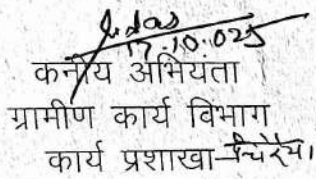 17.10.025
कनीय अभियंता
ग्रामीण कार्य विभाग
कार्य प्रशाखा-